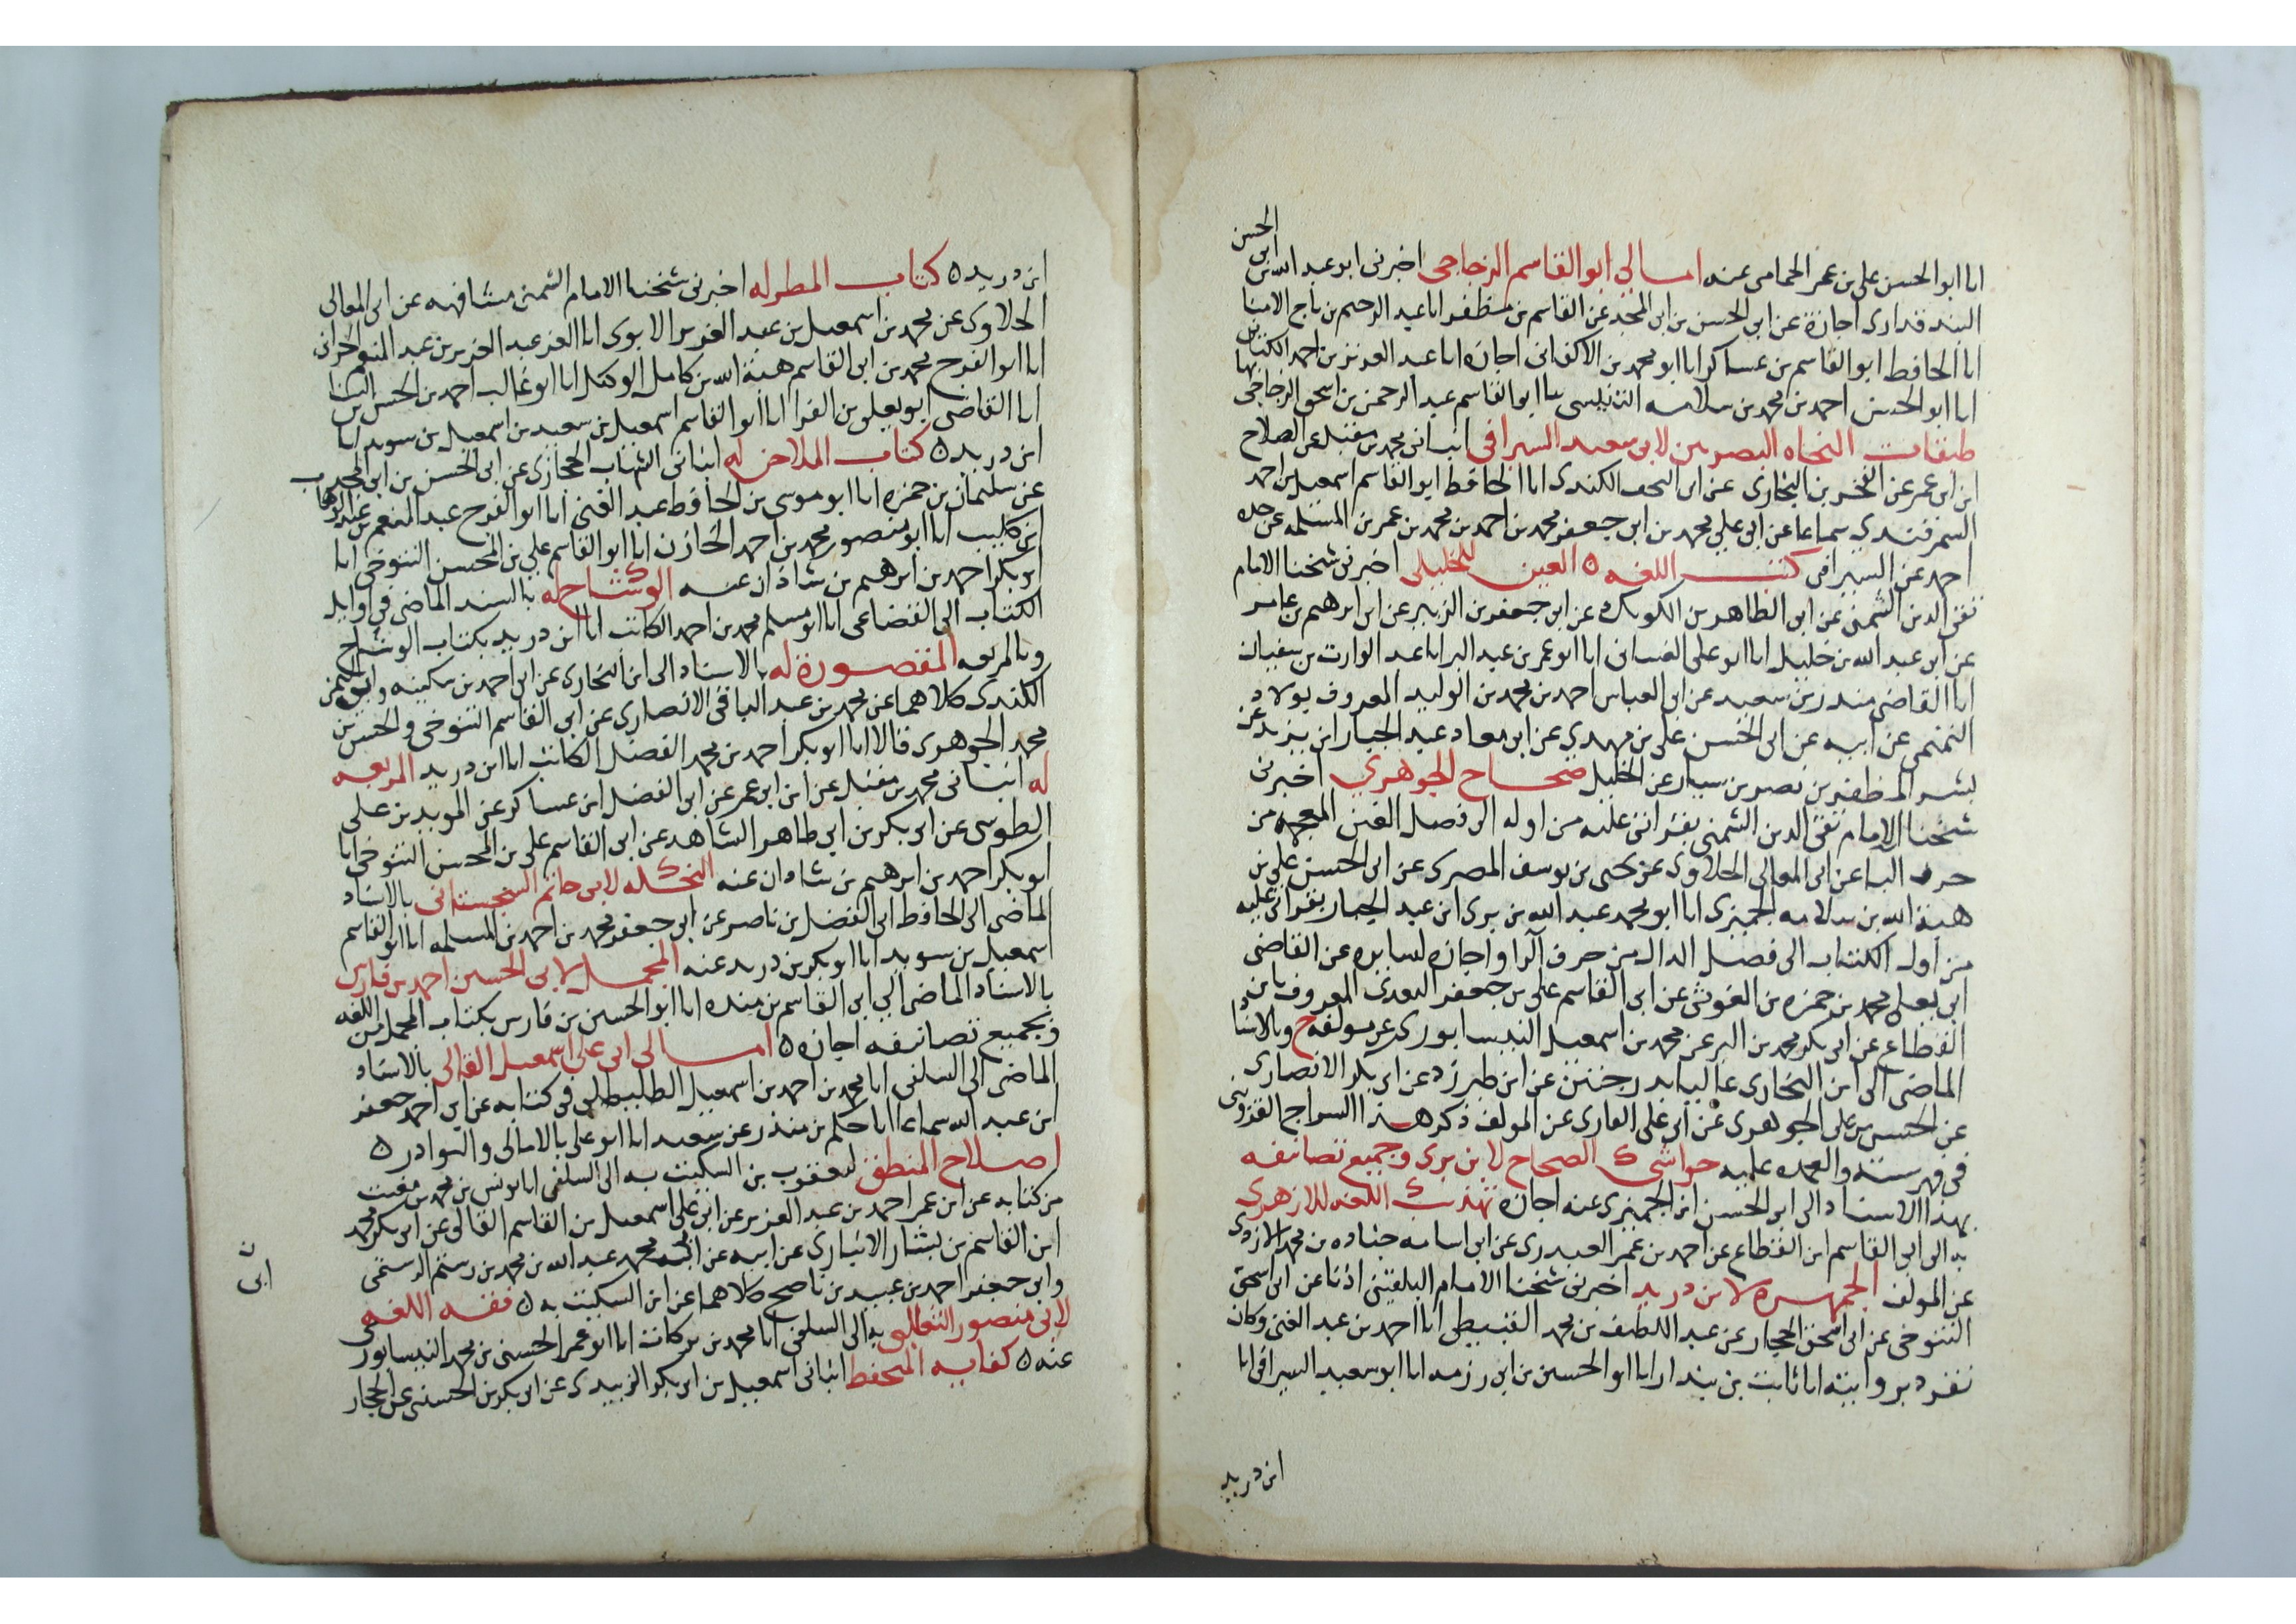 انا ابو الحسن على بن عمر الحمامى عنه امالى ابو القاسم الزجاجى اخبرنى ابو عبد الله بن ابى الحسن
البندقدارى اجازة عن ابى الحسن بن ابى المجد عن القاسم بن مظفر انا عبد الرحيم بن تاج الامنا
انا الحافظ ابو القاسم بن عساكر انا ابو محمد بن الاكفانى اجازة انا عبد العزيز بن احمد الكتانى
انا ابو الحسن احمد بن محمد بن سلامه بها ابو القاسم عبد الرحمن بن اسحق الزجاجى
طبقات النحاه البصريين لابى سعيد السيرافى انبانى محمد بن مقبل عن الصلاح
ابن ابى عمر عن الفخر بن البخارى عن ابى اليمن الكندى انا الحافظ ابو القاسم اسمعيل بن احمد
السمرقندى سماعا عن ابى على محمد بن ابى جعفر محمد بن احمد بن محمد بن عمر بن المسلمه عن جده
احمد عن السيرافى كتب اللغه ه العين للخليل اخبرنى شيخنا الامام
تقى الدين الشمنى عن ابى الطاهر بن الكويك عن ابى جعفر بن الزبير عن ابن ابرهيم بن عامر
عن ابى عبد الله بن خليل انا ابو على الغسانى انا ابو عمر بن عبد البر انا عبد الوارث بن سفيان
انا القاضى منذر بن سعيد عن ابى العباس احمد بن محمد بن الوليد المعروف بولاد
التميمى عن ابيه عن ابى الحسن على بن مهدى عن ابى معاد عبد الجبار ابن يزيد عن
ليث المظفر بن نصر بن سيار عن الخليل صحاح الجوهرى اخبرنى
شيخنا الامام تقى الدين الشمنى بقراتى عليه من اوله الى فصل الغين المعجمه من
حرف البا عن ابى المعالى الحلاوى عن يحيى بن يوسف المصرى عن ابى الحسن على بن
هبة الله بن سلامه الجميزى انا ابو محمد عبد الله بن برى ابن عبد الجبار بقراتى عليه
من اول الكتاب الى فصل الدال من حرف الرا واجازه لسايره عن القاضى
ابى يعلى محمد بن حمزه بن الغوثى عن ابى القاسم على بن جعفر السعدى المعروف بابن
القطاع عن ابى بكر محمد بن البر عن محمد بن اسمعيل النيسابورى عن مولفه ح وبالاسناد
الماضى الى ابن البخارى عاليا بدرجتين عن ابن طبرزد عن ابى بكر الانصارى
عن الحسن بن على الجوهرى عن ابى على الفارى عن المولف ذكر هذا السراج القزوينى
فى فهرسته والعهده عليه حواشى الصحاح لابن برى وجميع تصانيفه
بهذا الاسناد الى ابى الحسن ابن الجميزى عنه اجازة تهذيب اللغه للازهرى
به الى ابى القاسم ابن القطاع عن احمد بن عمر العبدرى عن ابى اسامه جناده بن محمد الازدى
عن المولف الجمهره لابن دريد اخبرنى شيخنا الامام البلقينى اذنا عن ابى اسحق
التنوخى عن ابى اسحق الحجار عن عبد اللطيف بن محمد القبيطى انا احمد بن عبد الغنى وكان
تفرد بروايته انا ثابت بن بندار انا ابو الحسين بن ابى رزمه انا ابو سعيد السيرافى انا
ابن دريد
ابن دريد ه كتاب المطر له اخبرنى شيخنا الامام الشمنى مشافهه عن ابى المعالى
الحلاوى عن محمد بن اسمعيل بن عبد العزيز الايوبى انا العز عبد العزيز بن عبد المنعم الحرانى
انا ابو الفرج محمد بن ابى القاسم هبة الله بن كامل الوكيل انا ابو غالب احمد بن الحسن بن البنا
انا القاضى ابو يعلى بن الفرا انا ابو القاسم اسمعيل بن سعيد بن اسمعيل بن سويد انا
ابن دريد ه كتاب الملاحن له انبانى الشهاب الحجازى عن ابى الحسن بن ابى المجد
عن سليمان بن حمزه انا ابو موسى بن الحافظ عبد الغنى انا ابو الفرج عبد المنعم بن عبد الوهاب
ابن كليب انا ابو منصور محمد بن احمد الخازن انا ابو القاسم على بن المحسن التنوخى انا
ابو بكر احمد بن ابرهيم بن شاذان عنه الوشاح له بالسند الماضى فى اوايل
الكتاب الى القضاعى انا ابو مسلم محمد بن احمد الكاتب انا ابن دريد بكتاب الوشاح
وبالمربعه المقصورة له بالاسناد الى ابن البخارى عن ابى احمد بن سكينه وابى اليمن
الكندى كلاهما عن محمد بن عبد الباقى الانصارى عن ابى القاسم التنوخى والحسن بن
محمد الجوهرى قالا انا ابو بكر احمد بن محمد الفضل الكاتب انا ابن دريد المربعه
له انبانى محمد بن مقبل عن ابن ابى عمر عن ابى الفضل ابن عساكر عن المويد بن على
الطوسى عن ابى بكر بن ابى طاهر الشاهد عن ابى القاسم على بن المحسن التنوخى انا
ابو بكر احمد بن ابرهيم بن شاذان عنه النخله لابى حاتم السجستانى بالاسناد
الماضى الى الحافظ ابى الفضل بن ناصر عن ابى جعفر محمد بن احمد بن المسلمه انا ابو القاسم
اسمعيل بن سويد انا ابو بكر بن دريد عنه المجمل لابى الحسين احمد بن فارس
بالاسناد الماضى الى ابى القاسم بن منده انا ابو الحسين بن فارس بكتاب المجمل من اللغه
وبجميع تصانيفه اجازه ه امالى ابى على اسمعيل القالى بالاسناد
الماضى الى السلفى انا محمد بن احمد بن اسمعيل الطليطلى فى كتابه عن ابى احمد جعفر
ابن عبد الله سماعا انا حكم بن منذر عن سعيد انا ابو على بالامالى والنوادر ه
اصلاح المنطق ليعقوب بن السكيت به الى السلفى انا يونس بن محمد بن مغيث
من كتابه عن ابى عمر احمد بن عبد العزيز عن ابى على اسمعيل بن القاسم القالى عن ابى بكر محمد
ابن القاسم بن بشار الانبارى عن ابيه عن ابى محمد عبد الله بن محمد بن رستم الرستمى
وابى جعفر احمد بن عبيد بن ناصح كلاهما عن ابن السكيت به ه فقه اللغه
لابى منصور الثعالبى به الى السلفى انا محمد بن بركات انا ابو عمر الحسنى بن محمد النيسابورى
عنه ه كفايه المتحفظ انبانى اسمعيل بن ابى بكر الزبيدى عن ابى بكر بن الحسين عن الحجار